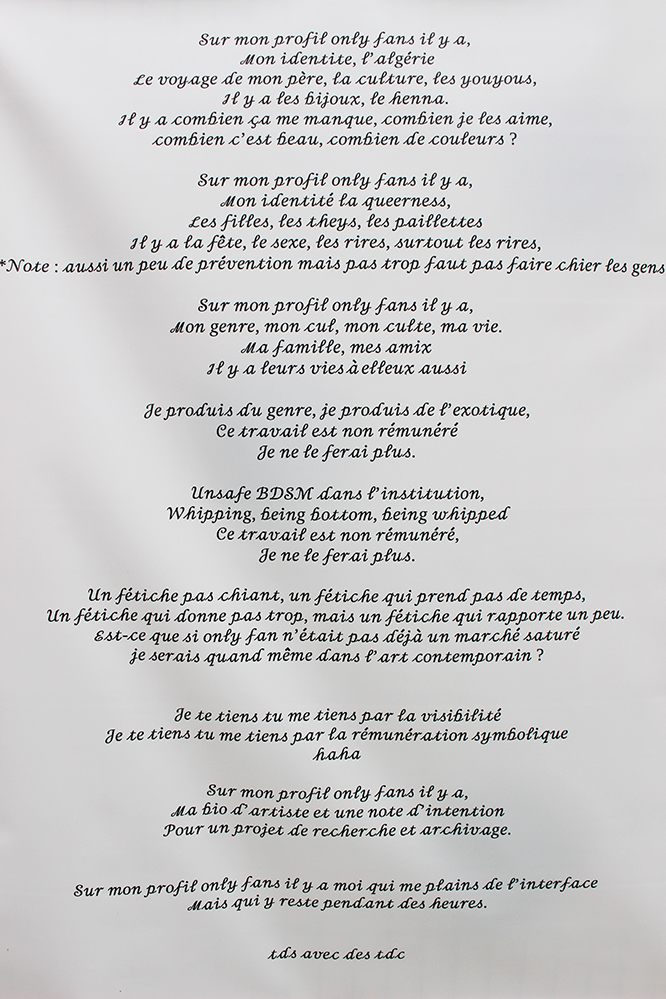 Sur mon profil only fans il y a,
Mon identite, l'algérie
Le voyage de mon père, la culture, les youyous,
Il y a les bijoux, le henna.
Il y a combien ça me manque, combien je les aime,
combien c'est beau, combien de couleurs ?
Sur mon profil only fans il y a,
Mon identité la queerness,
Les filles, les theys, les paillettes
Il y a la fête, le sexe, les rires, surtout les rires,
*Note : aussi un peu de prévention mais pas trop faut pas faire chier les gens
Sur mon profil only fans il y a,
Mon genre, mon cul, mon culte, ma vie.
Ma famille, mes amix
Il y a leurs vies à elleux aussi
Je produis du genre, je produis de l'exotique,
Ce travail est non rémunéré
Je ne le ferai plus.
Unsafe BDSM dans l'institution,
Whipping, being bottom, being whipped
Ce travail est non rémunéré,
Je ne le ferai plus.
Un fétiche pas chiant, un fétiche qui prend pas de temps,
Un fétiche qui donne pas trop, mais un fétiche qui rapporte un peu.
Est-ce que si only fan n'était pas déjà un marché saturé
je serais quand même dans l'art contemporain ?
Je te tiens tu me tiens par la visibilité
Je te tiens tu me tiens par la rémunération symbolique
haha
Sur mon profil only fans il y a,
Ma bio d'artiste et une note d'intention
Pour un projet de recherche et archivage.
Sur mon profil only fans il y a moi qui me plains de l'interface
Mais qui y reste pendant des heures.
tds avec des tdc